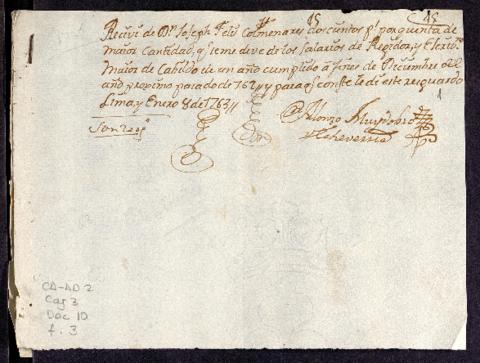 15 15
Recivi de Dn Joseph Felis Colmenares doscientos ps por quenta de
maior Cantidad, q se me deve de los Salarios de Regidor, y Escrivno
Maior de Cabildo de un año cumplido a fines de Diciembre del
año proximo pasado de 162 y para q conste le di este resguardo
Lima, y Enero 8 de 1763
Son 200 ps
Alonzo
Echeverria
1
CA-AD 2
Caj 3
Doc 10
f. 3